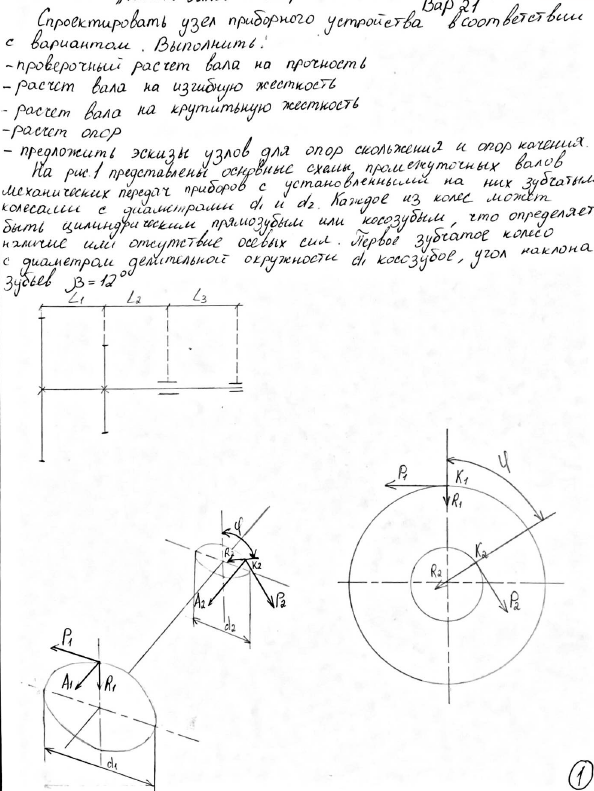 Вар 21
Спроектировать узел приборного устройства в соответствии
с вариантом. Выполнить:
- проверочный расчет вала на прочность
- расчет вала на изгибную жесткость
- расчет вала на крутильную жесткость
- расчет опор
- предложить эскизы узлов для опор скольжения и опор качения.
На рис. 1 представлены основные схемы промежуточных валов
механических передач приборов с установленными на них зубчатым
колесами с диаметрами d1 и d2. Каждое из колес может
быть цилиндрическим прямозубым или косозубым, что определяет
наличие или отсутствие осевых сил. Первое зубчатое колесо
с диаметром делительной окружности d1 косозубое, угол наклона
зубьев β = 12°
L1 L2 L3
P1 K1 φ
R1
K2
R2
P2
φ
R2 K2
A2 P2
d2
P1
A1 R1
d1
1